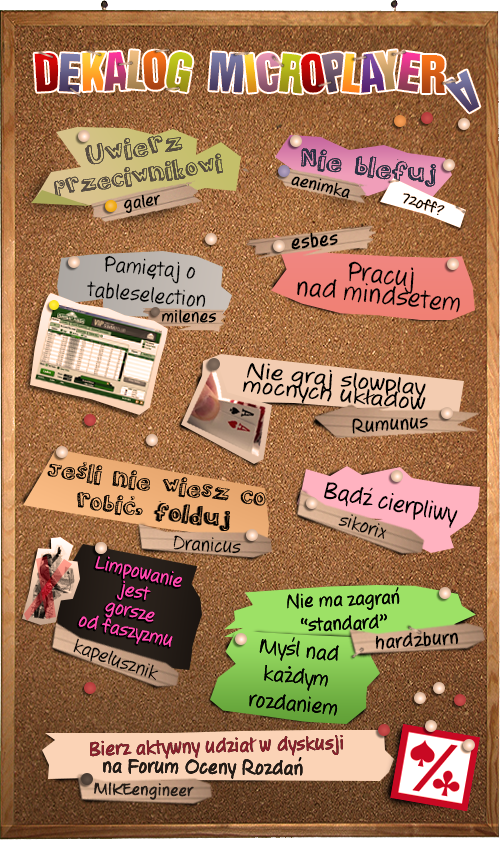 DEKALOG MICROPLAYERA
Uwierz
przeciwnikowi
galer
Nie blefuj
aenimka
72off?
esbes
Pamiętaj o
tableselection
milenes
Pracuj
nad mindsetem
Nie graj slowplay
mocnych układów
Rumunus
Jeśli nie wiesz co
robić, folduj
Dranicus
Bądź cierpliwy
sikorix
Limpowanie
jest
gorsze
od faszyzmu
kapelusznik
Nie ma zagrań
“standard”
hardzburn
Myśl nad
każdym
rozdaniem
Bierz aktywny udział w dyskusji
na Forum Oceny Rozdań
MIKEengineer